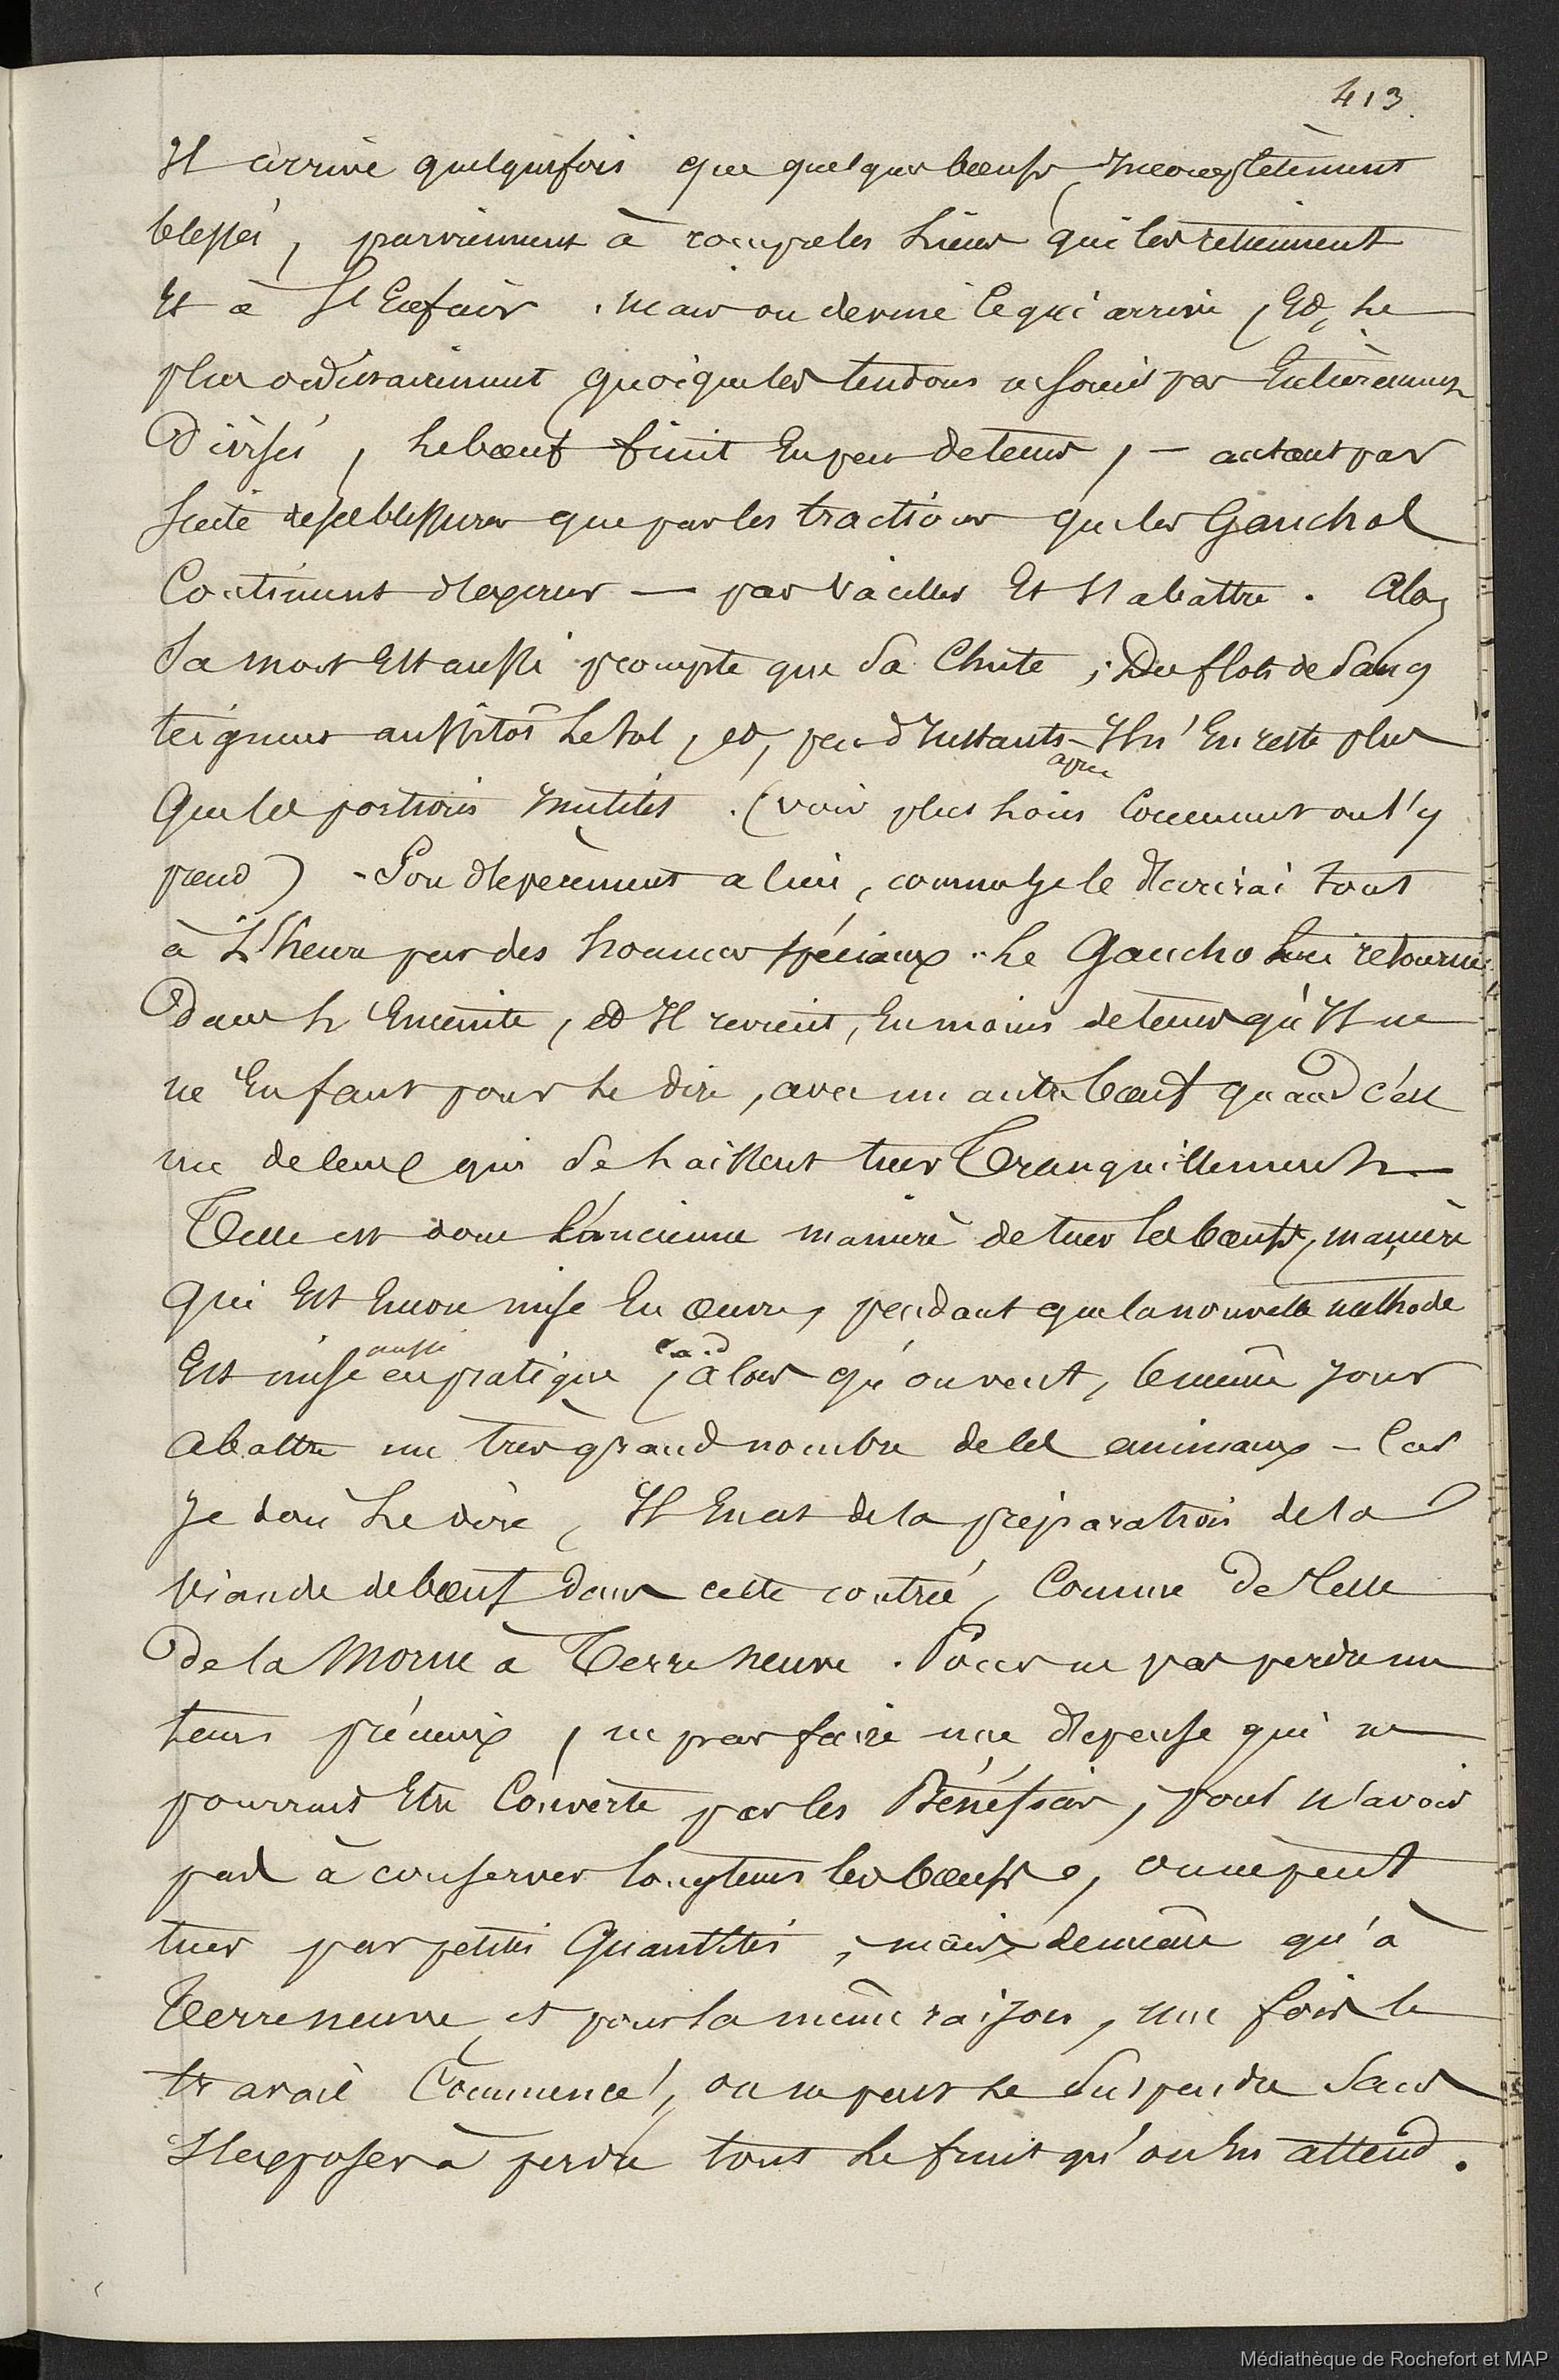 413.
Il arrive quelquefois que quelques bœufs, incomplètement
blessés, parviennent à rompre les liens qui les retiennent
et à s'enfuir. mais on devine ce qui arrive, et, le
plus ordinairement quoique les tendons ne soient pas entièrement
divisés, le bœuf finit en peu de tems, – autant par
suite de ses blessures que par les tractions que les Gauchos
continuent d'exercer — par vaciller et s'abattre. Alors
sa mort est aussi prompte que sa chute ; Des flots de sang
teignent aussitôt le sol, et, peu d'instants après Il n'en reste plus
que les portions inutiles. (voir plus loin comment on s'y
prend) - Son dépècement a lieu, comme je le décrirai tout
à l'heure par des hommes spéciaux. Le Gaucho lui retourne
dans l'enceinte, et Il revient, en moins de tems qu'Il ne
ne en faut pour le dire, avec un autre bœuf quand c'est
un de ceux qui se laissent tuer tranquillement
Telle est donc l'ancienne manière de tuer les bœufs, manière
qui est encore mise en œuvre, pendant que la nouvelle méthode
est mise aussi en pratique, c.a.d alors qu'on veut, le même jour
abattre un très grand nombre de ces animaux – Car
je dois le dire, Il en est de la préparation de la
viande de bœuf dans cette contrée, comme de celle
de la Morue à Terre neuve. Pour ne pas perdre un
tems précieux, ne pas faire une dépense qui ne
pourrait être couverte par les Bénéfices, pour n'avoir
pas à conserver longtems les bœufs, on ne peut
tuer par petites quantités ; mais de même qu'à
Terreneuve, et pour la même raison, une fois le
travail commencé, on ne peut le suspendre sans
s'exposer à perdre tout le fruit qu'on en attend.
Médiathèque de Rochefort et MAP